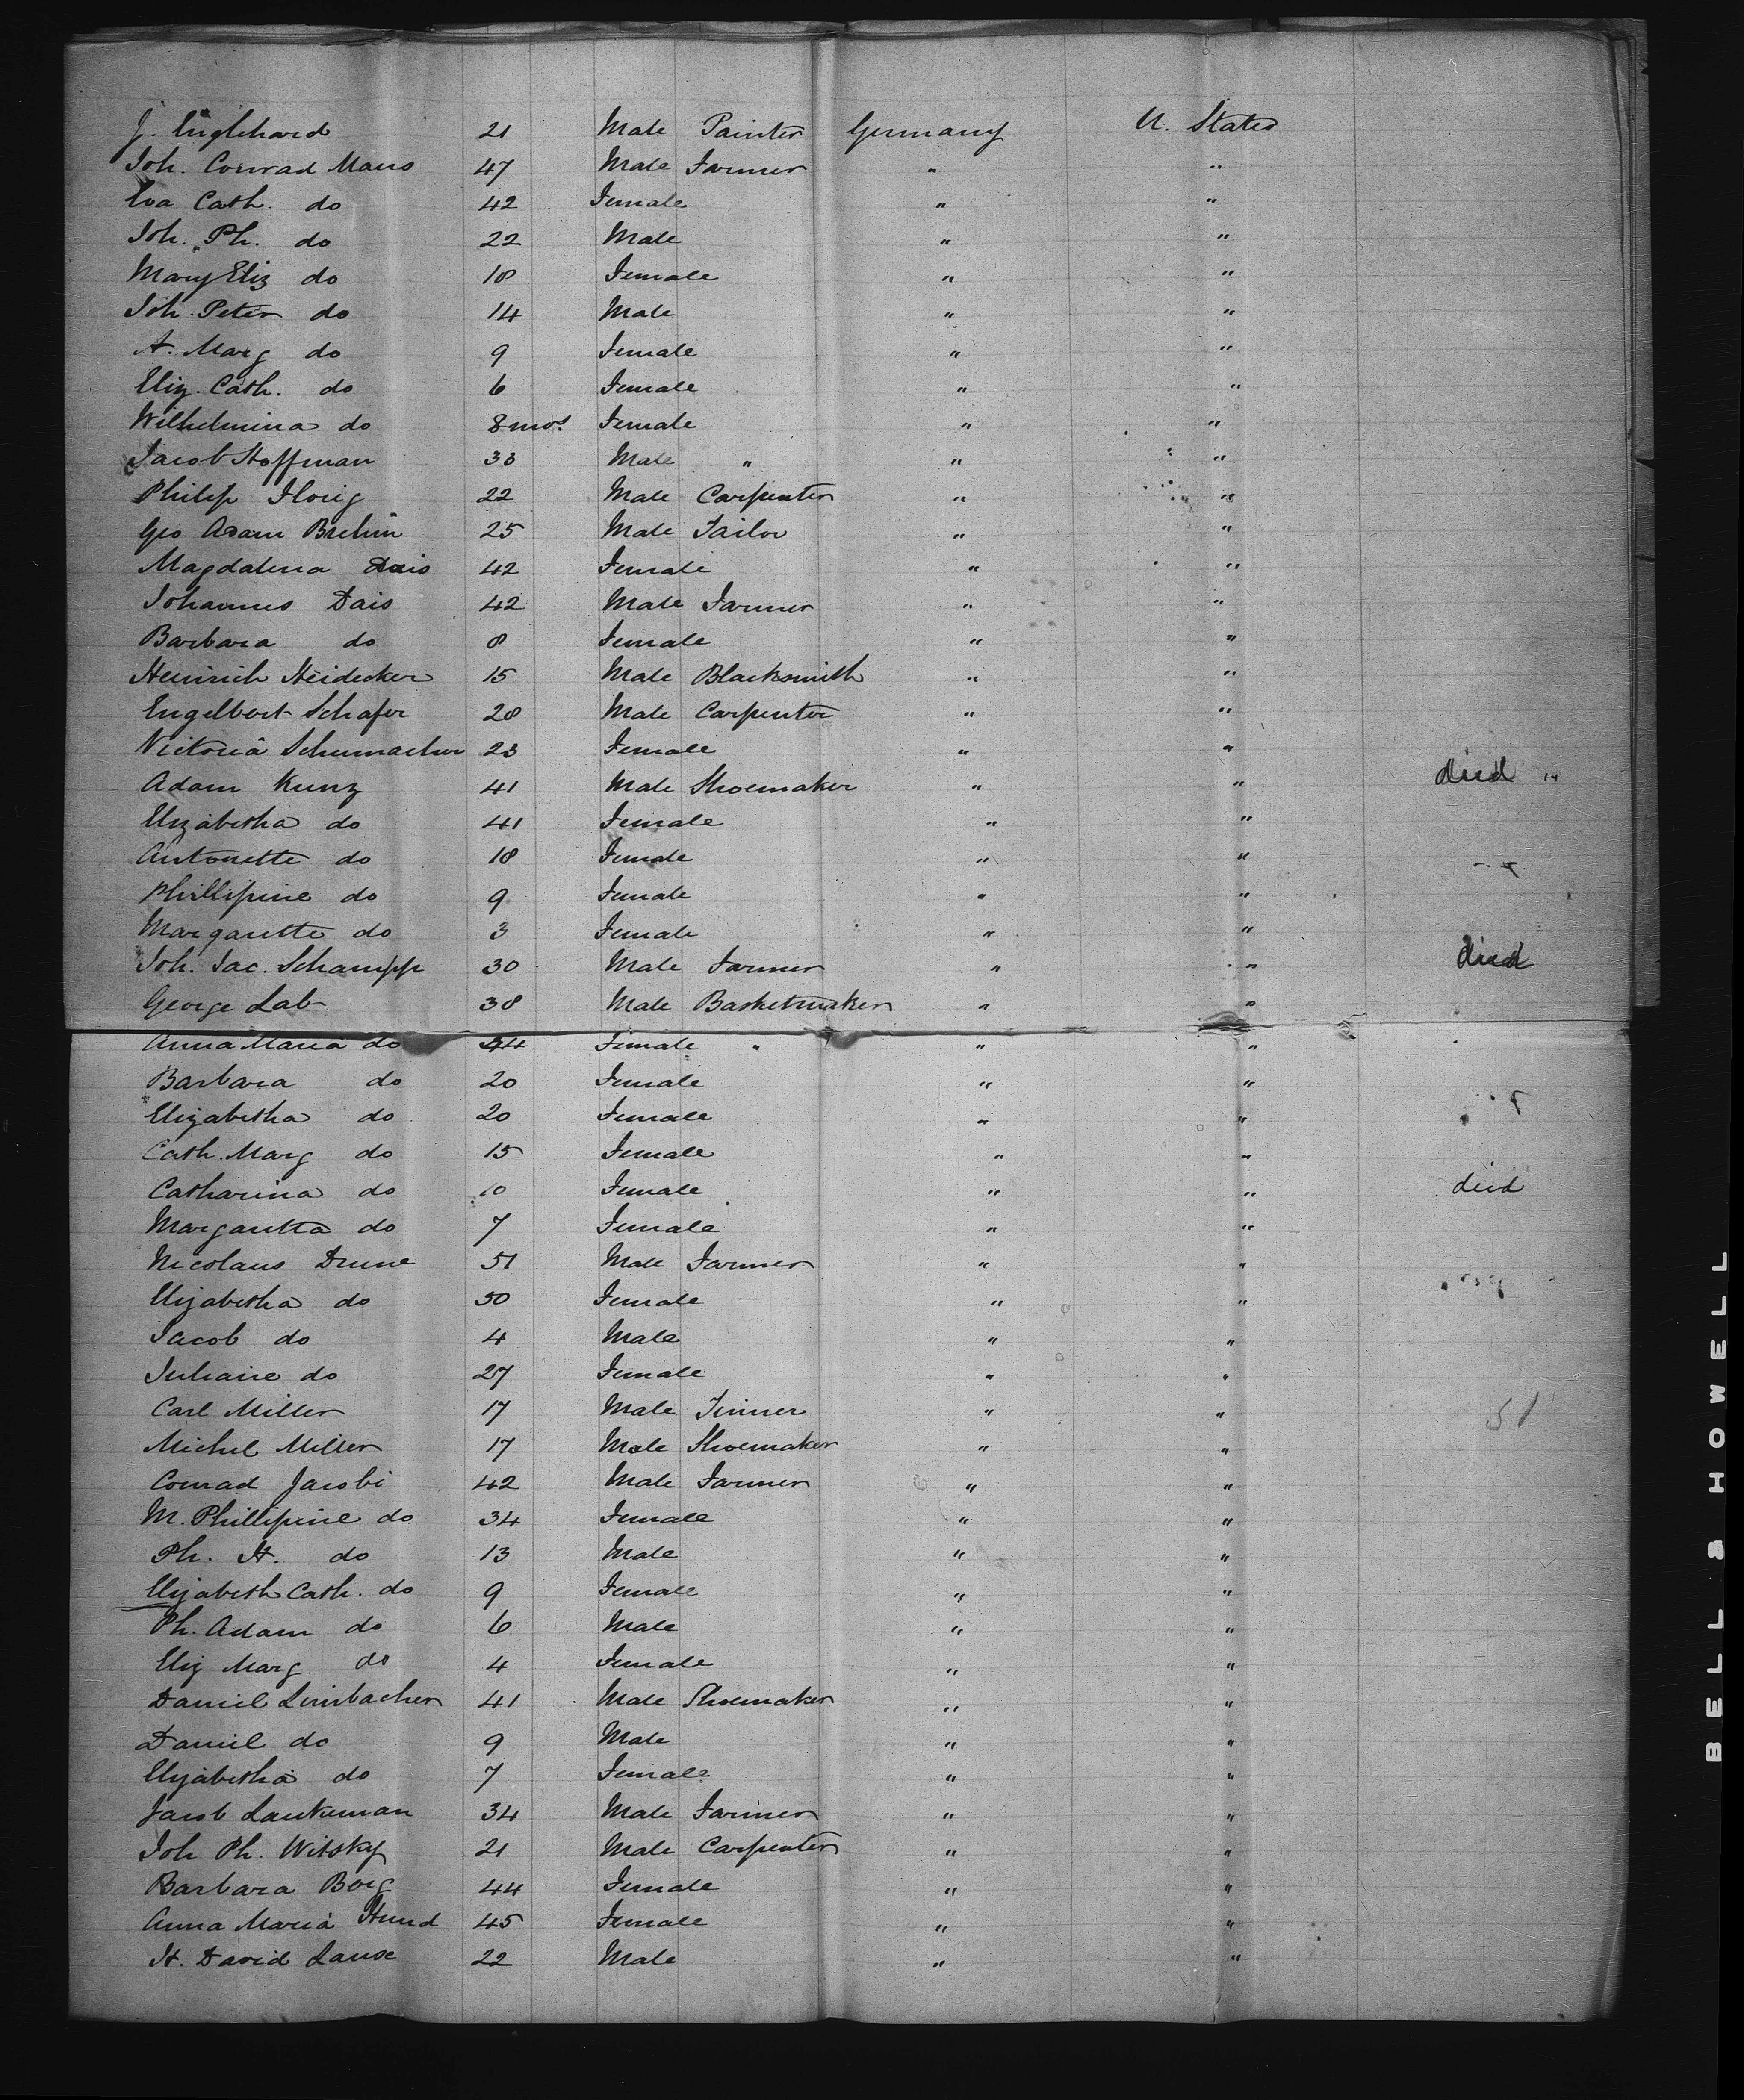 J. Englehard 21 Male Painter Germany U. States
Joh. Conrad Maus 47 Male Farmer " "
Eva Cath. do 42 Female " "
Joh. Ph. do 22 Male " "
Mary Eliz do 18 Female " "
Joh. Peter do 14 Male " "
A. Marg do 9 Female " "
Eliz. Cath. do 6 Female " "
Wilhelmina do 8 mos. Female " "
Jacob Hoffman 33 Male " " "
Philip Florig 22 Male Carpenter " "
Geo Adam Brehm 25 Male Tailor " "
Magdalena Dais 42 Female " "
Johannes Dais 42 Male Farmer " "
Barbara do 8 Female " "
Heinrich Heidecker 15 Male Blacksmith " "
Engelbert Schafer 28 Male Carpenter " "
Victoria Schumacher 23 Female " "
Adam Kunz 41 Male Shoemaker " " died "
Elizabetha do 41 Female " "
Antonette do 18 Female " "
Phillipine do 9 Female " "
Margarette do 3 Female " "
Joh. Jac. Schampp 30 Male Farmer " " died
George Lab 38 Male Basketmaker " "
Anna Maria do 44 Female " " "
Barbara do 20 Female " "
Elizabetha do 20 Female " "
Cath. Marg do 15 Female " "
Catharina do 10 Female " " died
Margaretta do 7 Female " "
Nicolaus Drune 51 Male Farmer " "
Elizabetha do 50 Female " "
Jacob do 4 Male " "
Juliane do 27 Female " "
Carl Miller 17 Male Tinner " " 51
Michel Miller 17 Male Shoemaker " "
Conrad Jacobi 42 Male Farmer " "
M. Phillipine do 34 Female " "
Ph. H. do 13 Male " "
Elizabeth Cath. do 9 Female " "
Ph. Adam do 6 Male " "
Eliz Marg do 4 Female " "
Daniel Limbacher 41 Male Shoemaker " "
Daniel do 9 Male " "
Elizabetha do 7 Female " "
Jacob Laukeman 34 Male Farmer " "
Joh Ph. Witsky 21 Male Carpenter " "
Barbara Borg 44 Female " "
Anna Maria Hund 45 Female " "
H. David Lause 22 Male " "
BELL & HOWELL